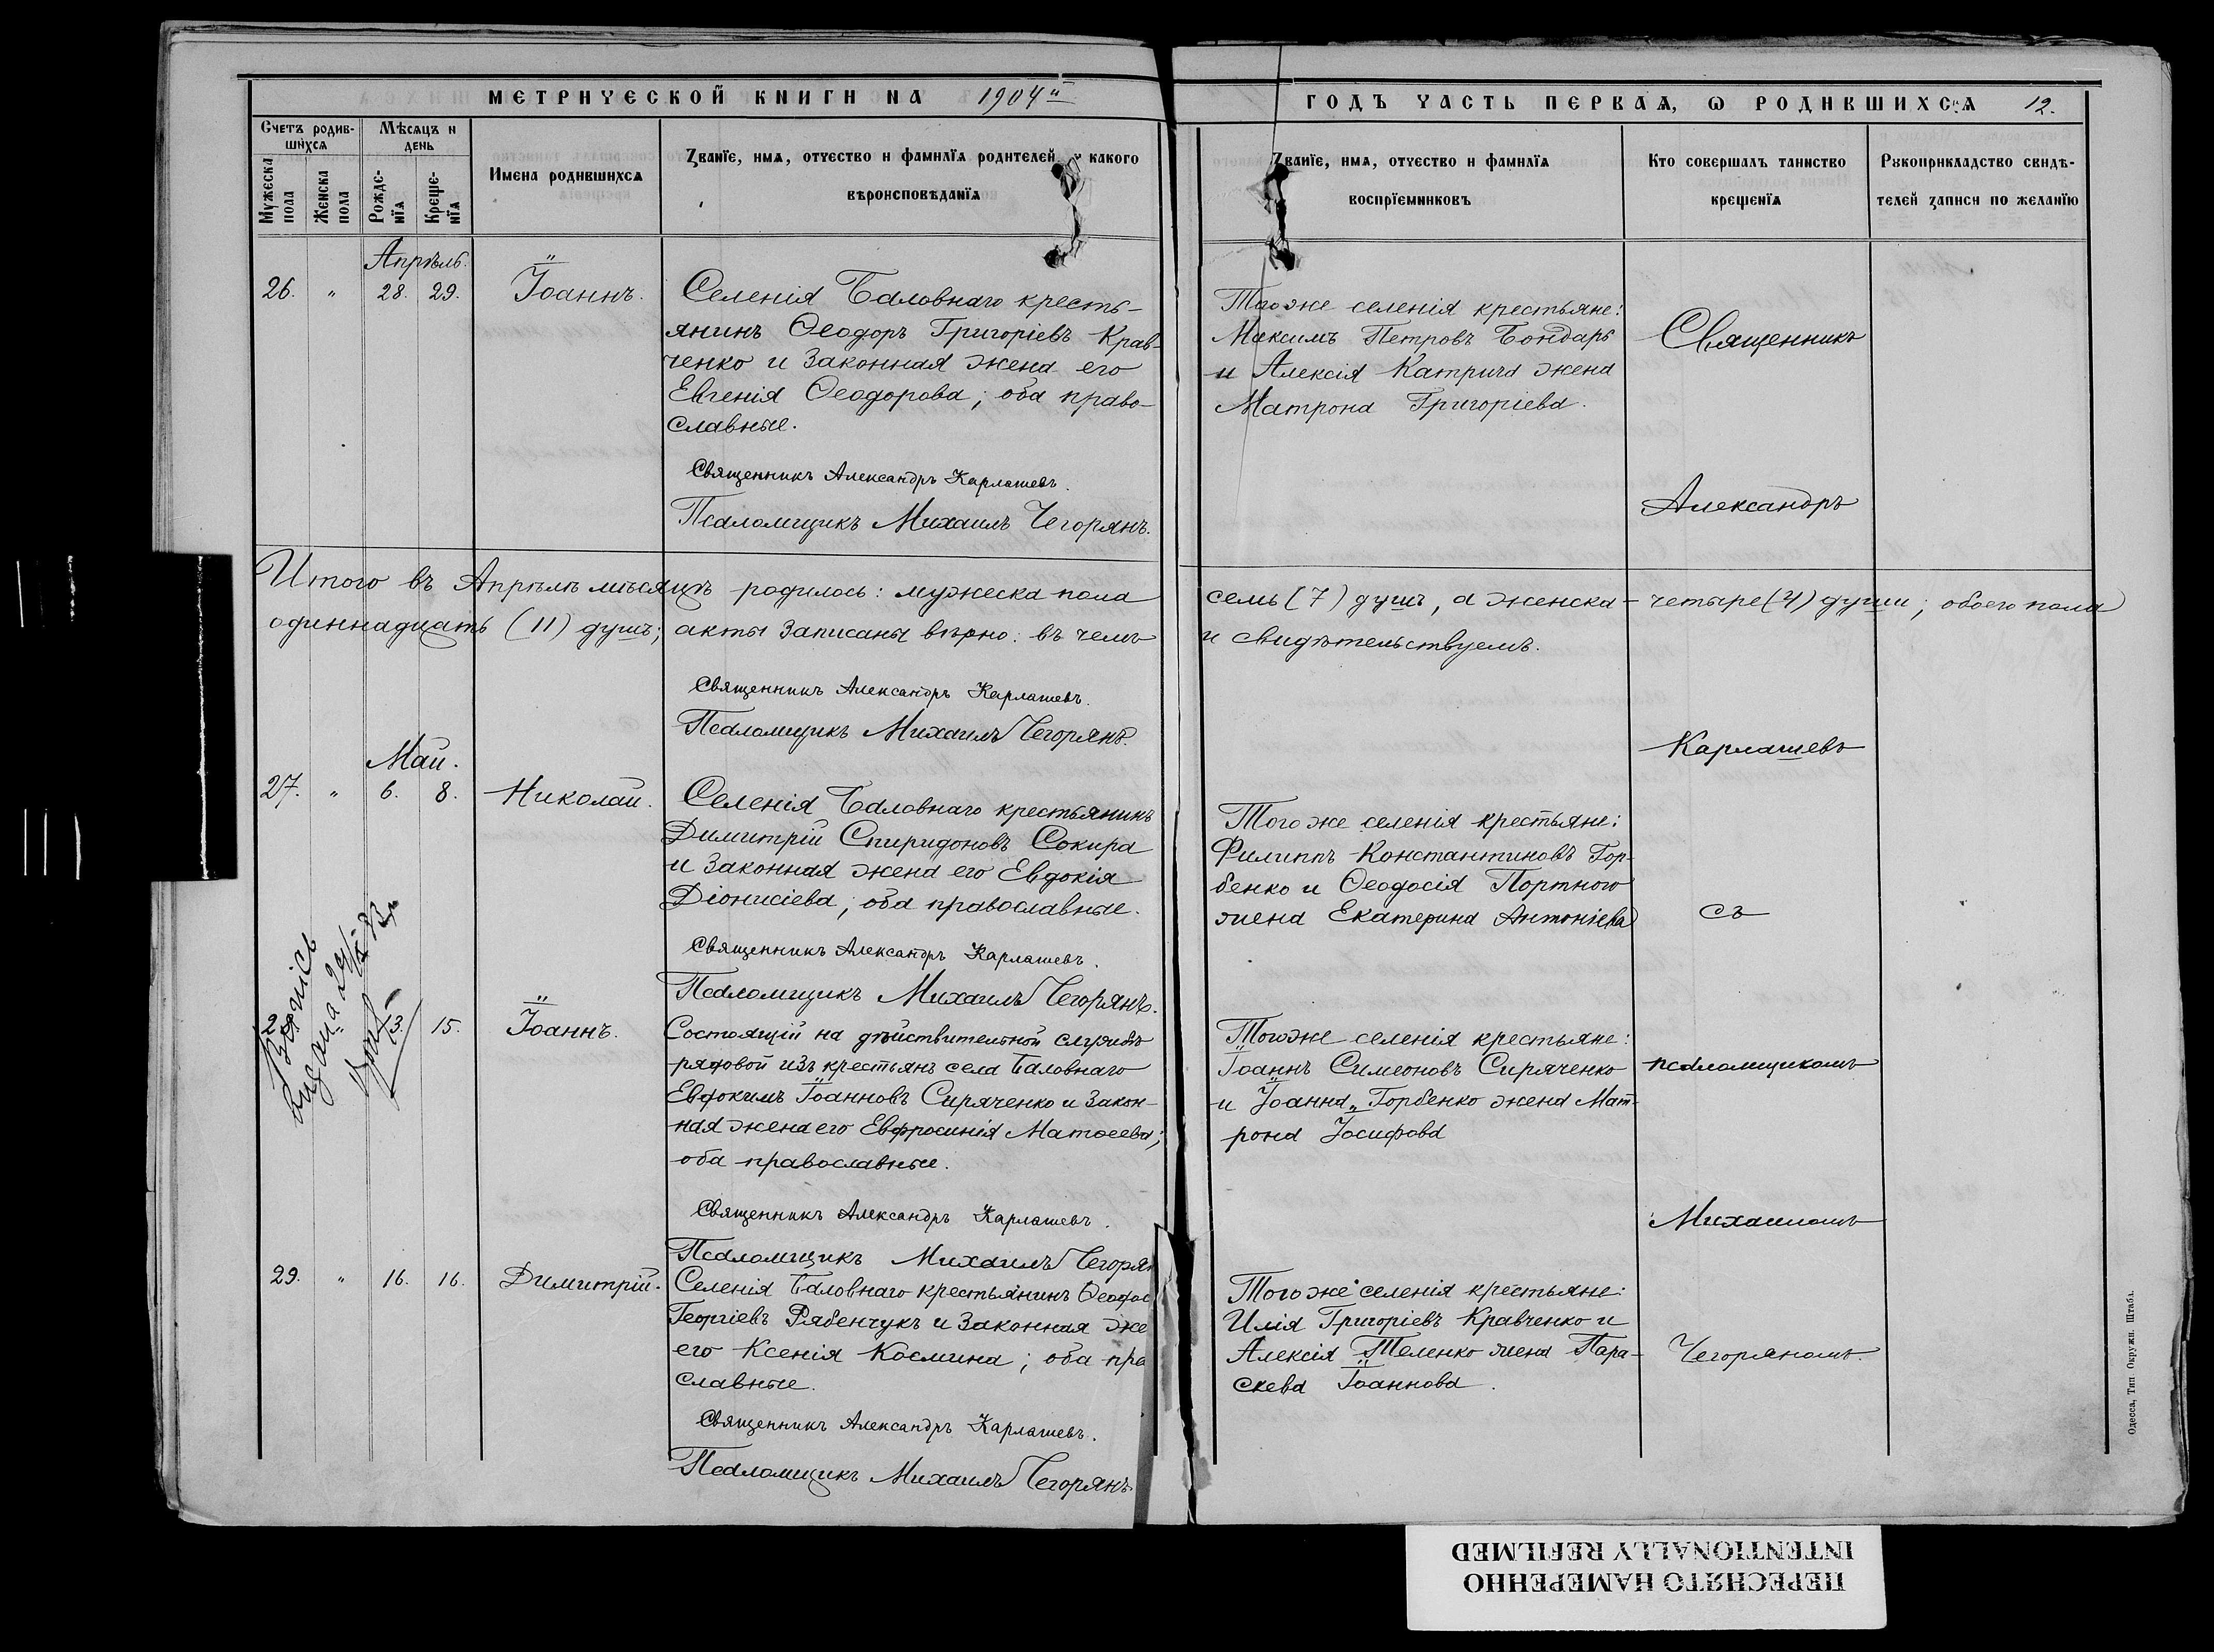 МЕТРИЧЕСКОЙ КНИГИ НА 1904й
ГОДЪ ЧАСТЬ ПЕРВАЯ, Ѡ РОДИВШИХСЯ 12.
Счетъ родившихся
Мѣсяцъ и день
Мужеска пола
Женска пола
Рожденїя
Крещенїя
Имена родившихся
Званїе, имя, отчество и фамилїя родителей, и какого
вѣроисповѣданїя
Званїе, имя, отчество и фамилїя
воспрїемниковъ
Кто совершалъ таинство
крещенїя
Рукоприкладство свидѣ-
телей записи по желанїю
Апрѣль.
26. " 28. 29. Іоаннъ.
Селенія Баловнаго кресть-
янинъ Ѳеодоръ Григоріевъ Крав-
ченко и законная жена его
Евгенія Ѳеодорова; оба право-
славные.
Священникъ Александръ Карлашевъ.
Псаломщикъ Михаилъ Чегорянъ.
Того же селенія крестьяне:
Максимъ Петровъ Бондарь
и Алексія Катрича жена
Матрона Григоріева.
Священникъ
Александръ
Итого въ Апрѣлѣ мѣсяцѣ родилось: мужеска пола семь (7) душъ, а женска - четыре (4) души; обоего пола
одиннадцать (11) душъ; акты записаны вѣрно: въ чемъ и свидѣтельствуемъ.
Священникъ Александръ Карлашевъ.
Псаломщикъ Михаилъ Чегорянъ.
Карлашевъ
Май.
27. " 6. 8. Николай.
Селенія Баловнаго крестьянинъ
Димитрій Спиридоновъ Сокира
и законная жена его Евдокія
Діонисіева; оба православные.
Священникъ Александръ Карлашевъ.
Псаломщикъ Михаилъ Чегорянъ.
Того же селенія крестьяне:
Филиппъ Константиновъ Гор-
бенко и Ѳеодосія Портного
жена Екатерина Антоніева
съ
выдана
13. 15. Іоаннъ.
Состоящій на дѣйствительной службѣ
рядовой изъ крестьянъ села Баловнаго
Евдокимъ Іоанновъ Сиряченко и закон-
ная жена его Евфросинія Матѳеева;
оба православные.
Священникъ Александръ Карлашевъ.
Псаломщикъ Михаилъ Чегорян
Того же селенія крестьяне:
Іоаннъ Симеоновъ Сиряченко
и Іоанна Горбенко жена Мат-
рона Іосифова
псаломщикомъ
Михаиломъ
29. " 16. 16. Димитрій.
Селенія Баловнаго крестьянинъ Ѳеодос
Георгіевъ Рябенчукъ и законная же
его Ксенія Космина; оба пра
славные.
Священникъ Александръ Карлашевъ.
Псаломщикъ Михаилъ Чегорянъ.
Того же селенія крестьяне:
Илія Григоріевъ Кравченко и
Алексія Теленко жена Пара-
скева Іоаннова.
Чегоряномъ.
Одесса, Тип. Окружн. Штаба.
ПЕРЕСНЯТО НАМЕРЕННО
INTENTIONALLY REFILMED